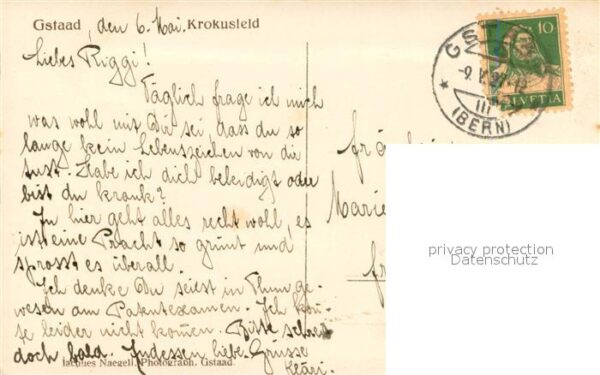 Gstaad, den 6. Mai. Krokusfeld
Liebes Riggi!
Täglich frage ich mich
was wohl mit Dir sei, dass du so
lange kein Lebenszeichen von dir
tust. Habe ich dich beleidigt oder
bist du krank?
In hier geht alles recht wohl, es
ist eine Pracht so grünt und
sprosst es überall.
Ich denke Du seiest in Thun ge-
wesen am Patentexamen. Ich kön-
se leider nicht kom̄en. Bitte schreib
doch bald. Indessen liebe Grüsse
Kläri.
Jacques Naegeli, Photograph, Gstaad.
10
HELVETIA
GSTAAD
-9.V.
(BERN)
Marie
privacy protection
Datenschutz